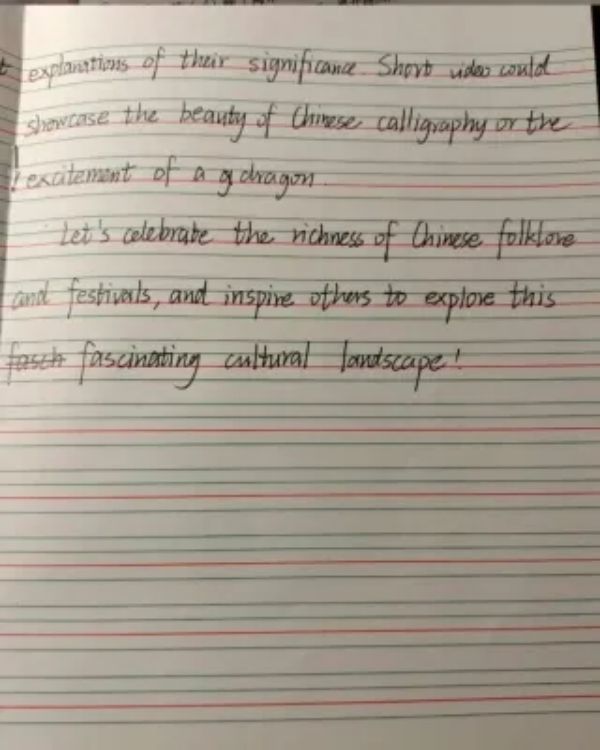 explanations of their significance. Short video could
showcase the beauty of Chinese calligraphy or the
excitement of a g dragon.
Let's celebrate the richness of Chinese folklore
and festivals, and inspire others to explore this
fasch fascinating cultural landscape!